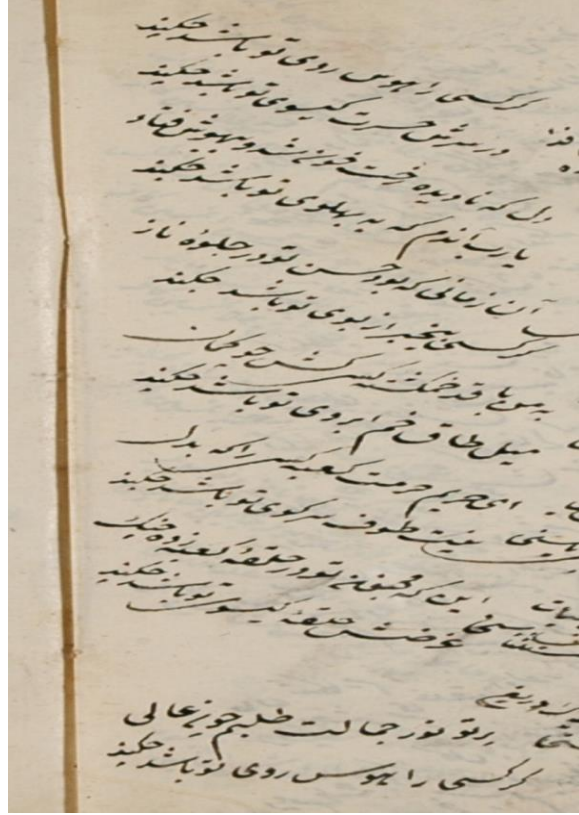 گر کسی را هوس روی تو باشد چکند
در سرش حسرت گیسوی تو باشد چکند
دل که نادیده رخت خون شد و بیهوش فتاد
یارب آندم که به پهلوی تو باشد چکند
آن زمانی که بود حسن تو در جلوه ناز
گر کسی بیخبر از بوی تو باشد چکند
با قد خم گشته کسی کش چو کمان
میل طاق خم ابروی تو باشد چکند
ای حریم حرمت کعبه کسی را که بدل
نیت طوف سر کوی تو باشد چکند
این که زد در حلقه کعبه چنگ
غرضش حلقه گیسوی تو باشد چکند
پرتو نور جمالت طلبم چون عالی
گر کسی را هوس روی تو باشد چکند